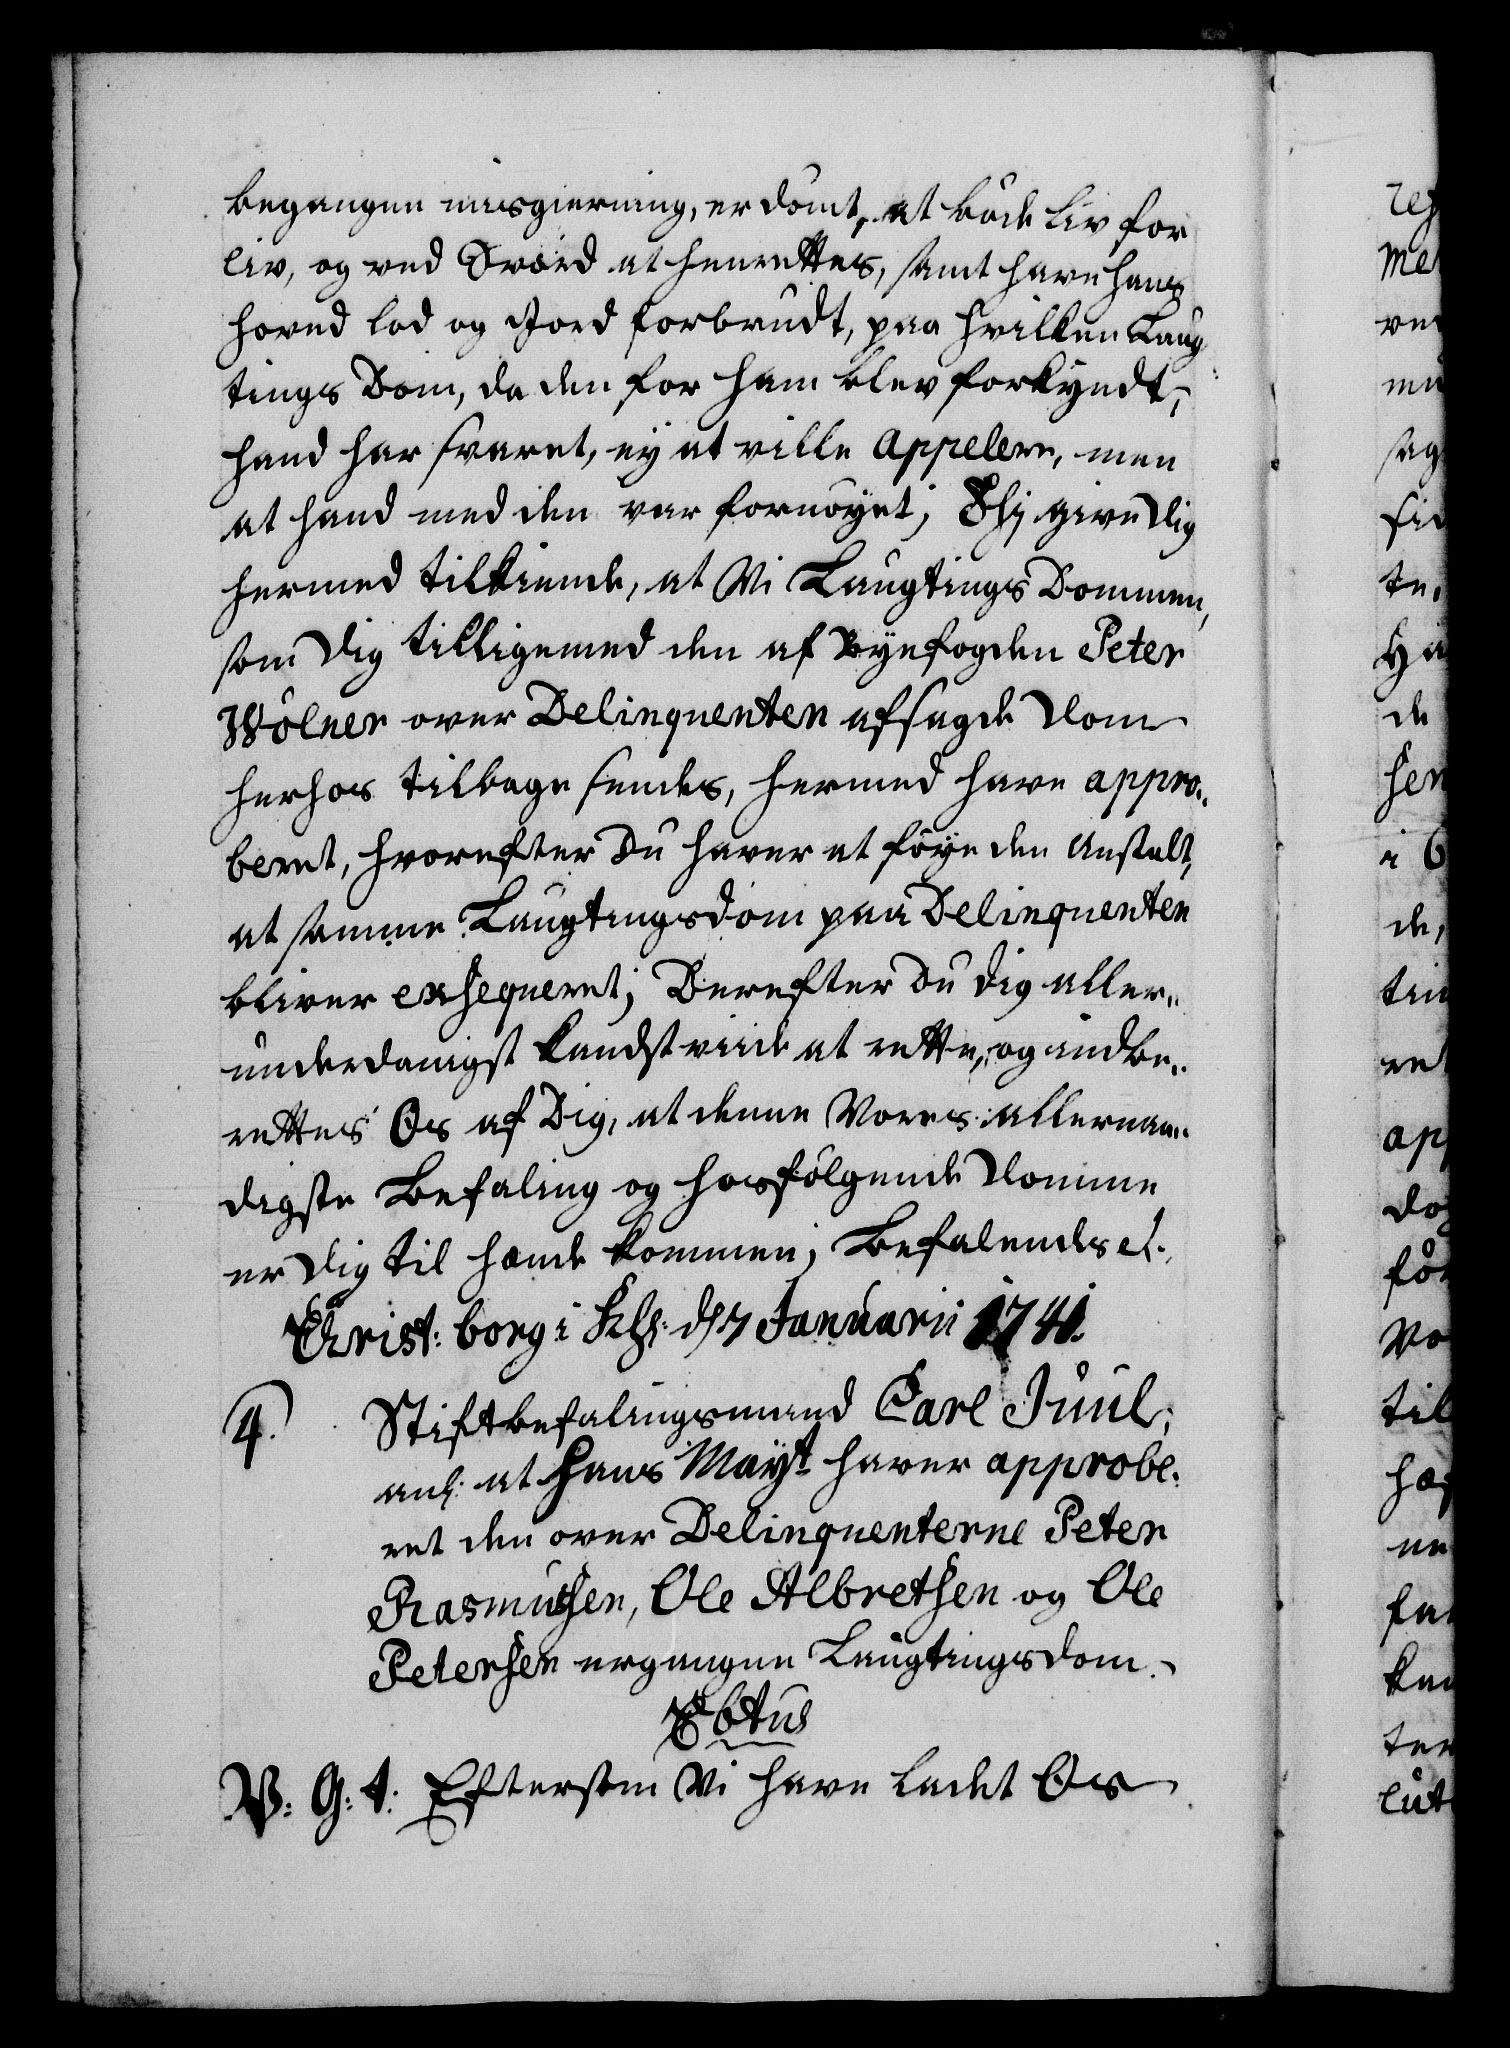 begangne misgierning, er dømt, at bøde Liv for
Liv, og ved Sværd at henrettes, samt have hans
hoved lod og Jord forbrudt, paa hvilken Laug
tings Dom, da den for ham blev forkyndt,
hand har svaret, ey at ville Appelere, men
at hand med den var fornøyet; Thj give Dig
hermed tilkiende, at Vi Laugtings Dommen,
som Dig tilligemed den af Byefogden Peter
Wølner over Delinquenten afsagde Dom
herhos tilbage sendes, hermed have appro-
beret, hvorefter Du haver at føye den Anstalt,
at samme Laugtingsdom paa Delinquenten
bliver exsequeret; Derefter Du dig aller-
underdanigst kandst viide at rette, og indbe-
rettes Os af Dig, at denne Vores allernaa-
digste Befaling og hosfølgende Domme
er Dig til hænde kommen; Befalendes etc.
Christ: borg i Kbh: d 7 Januarii 1741.
4. Stiftbefalingsmand Carl Juul,
anl: at Hans Mayt haver approbe-
ret den over Delinquenterne Peter
Rasmussen, Ole Albretsen og Ole
Petersen ergangne Laugtingsdom.
V: G: t: Eftersom Vi have ladet Os